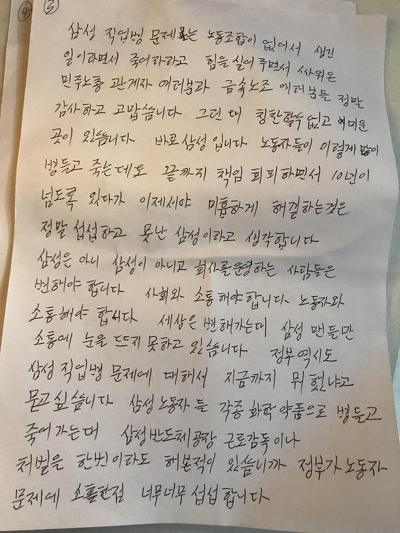 ③
삼성 직업병 문제는 노동조합이 없어서 생긴
일이라면서 축하하고 힘을 실어 주면서 싸워온
민주노총 관계자 여러분과 금속노조 여러분들 정말
감사하고 고맙습니다 그런데 칭찬할수 없고 미운
곳이 있습니다 바로 삼성 입니다 노동자들이 이렇게 많이
병들고 죽는데도 끝까지 책임 회피하면서 10년이
넘도록 있다가 이제서야 미흡하게 해결하는것은
정말 섭섭하고 못난 삼성이라고 생각합니다
삼성은 아니 삼성이 아니고 회사를 운영하는 사람들은
변해야 합니다 사회와 소통해야 합니다 노동자와
소통해야 합니다 세상은 변해가는데 삼성 맨들만
소통에 눈을 뜨지 못하고 있습니다 정부 역시도
삼성 직업병 문제에 대해서 지금까지 뭐 했냐고
묻고 싶습니다 삼성노동자 들 각종 화학 약품으로 병들고
죽어가는데 삼성반도체공장 근로감독이나
처벌을 한번이라도 해본적이 있습니까 정부가 노동자
문제에 소홀한점 너무너무 섭섭합니다